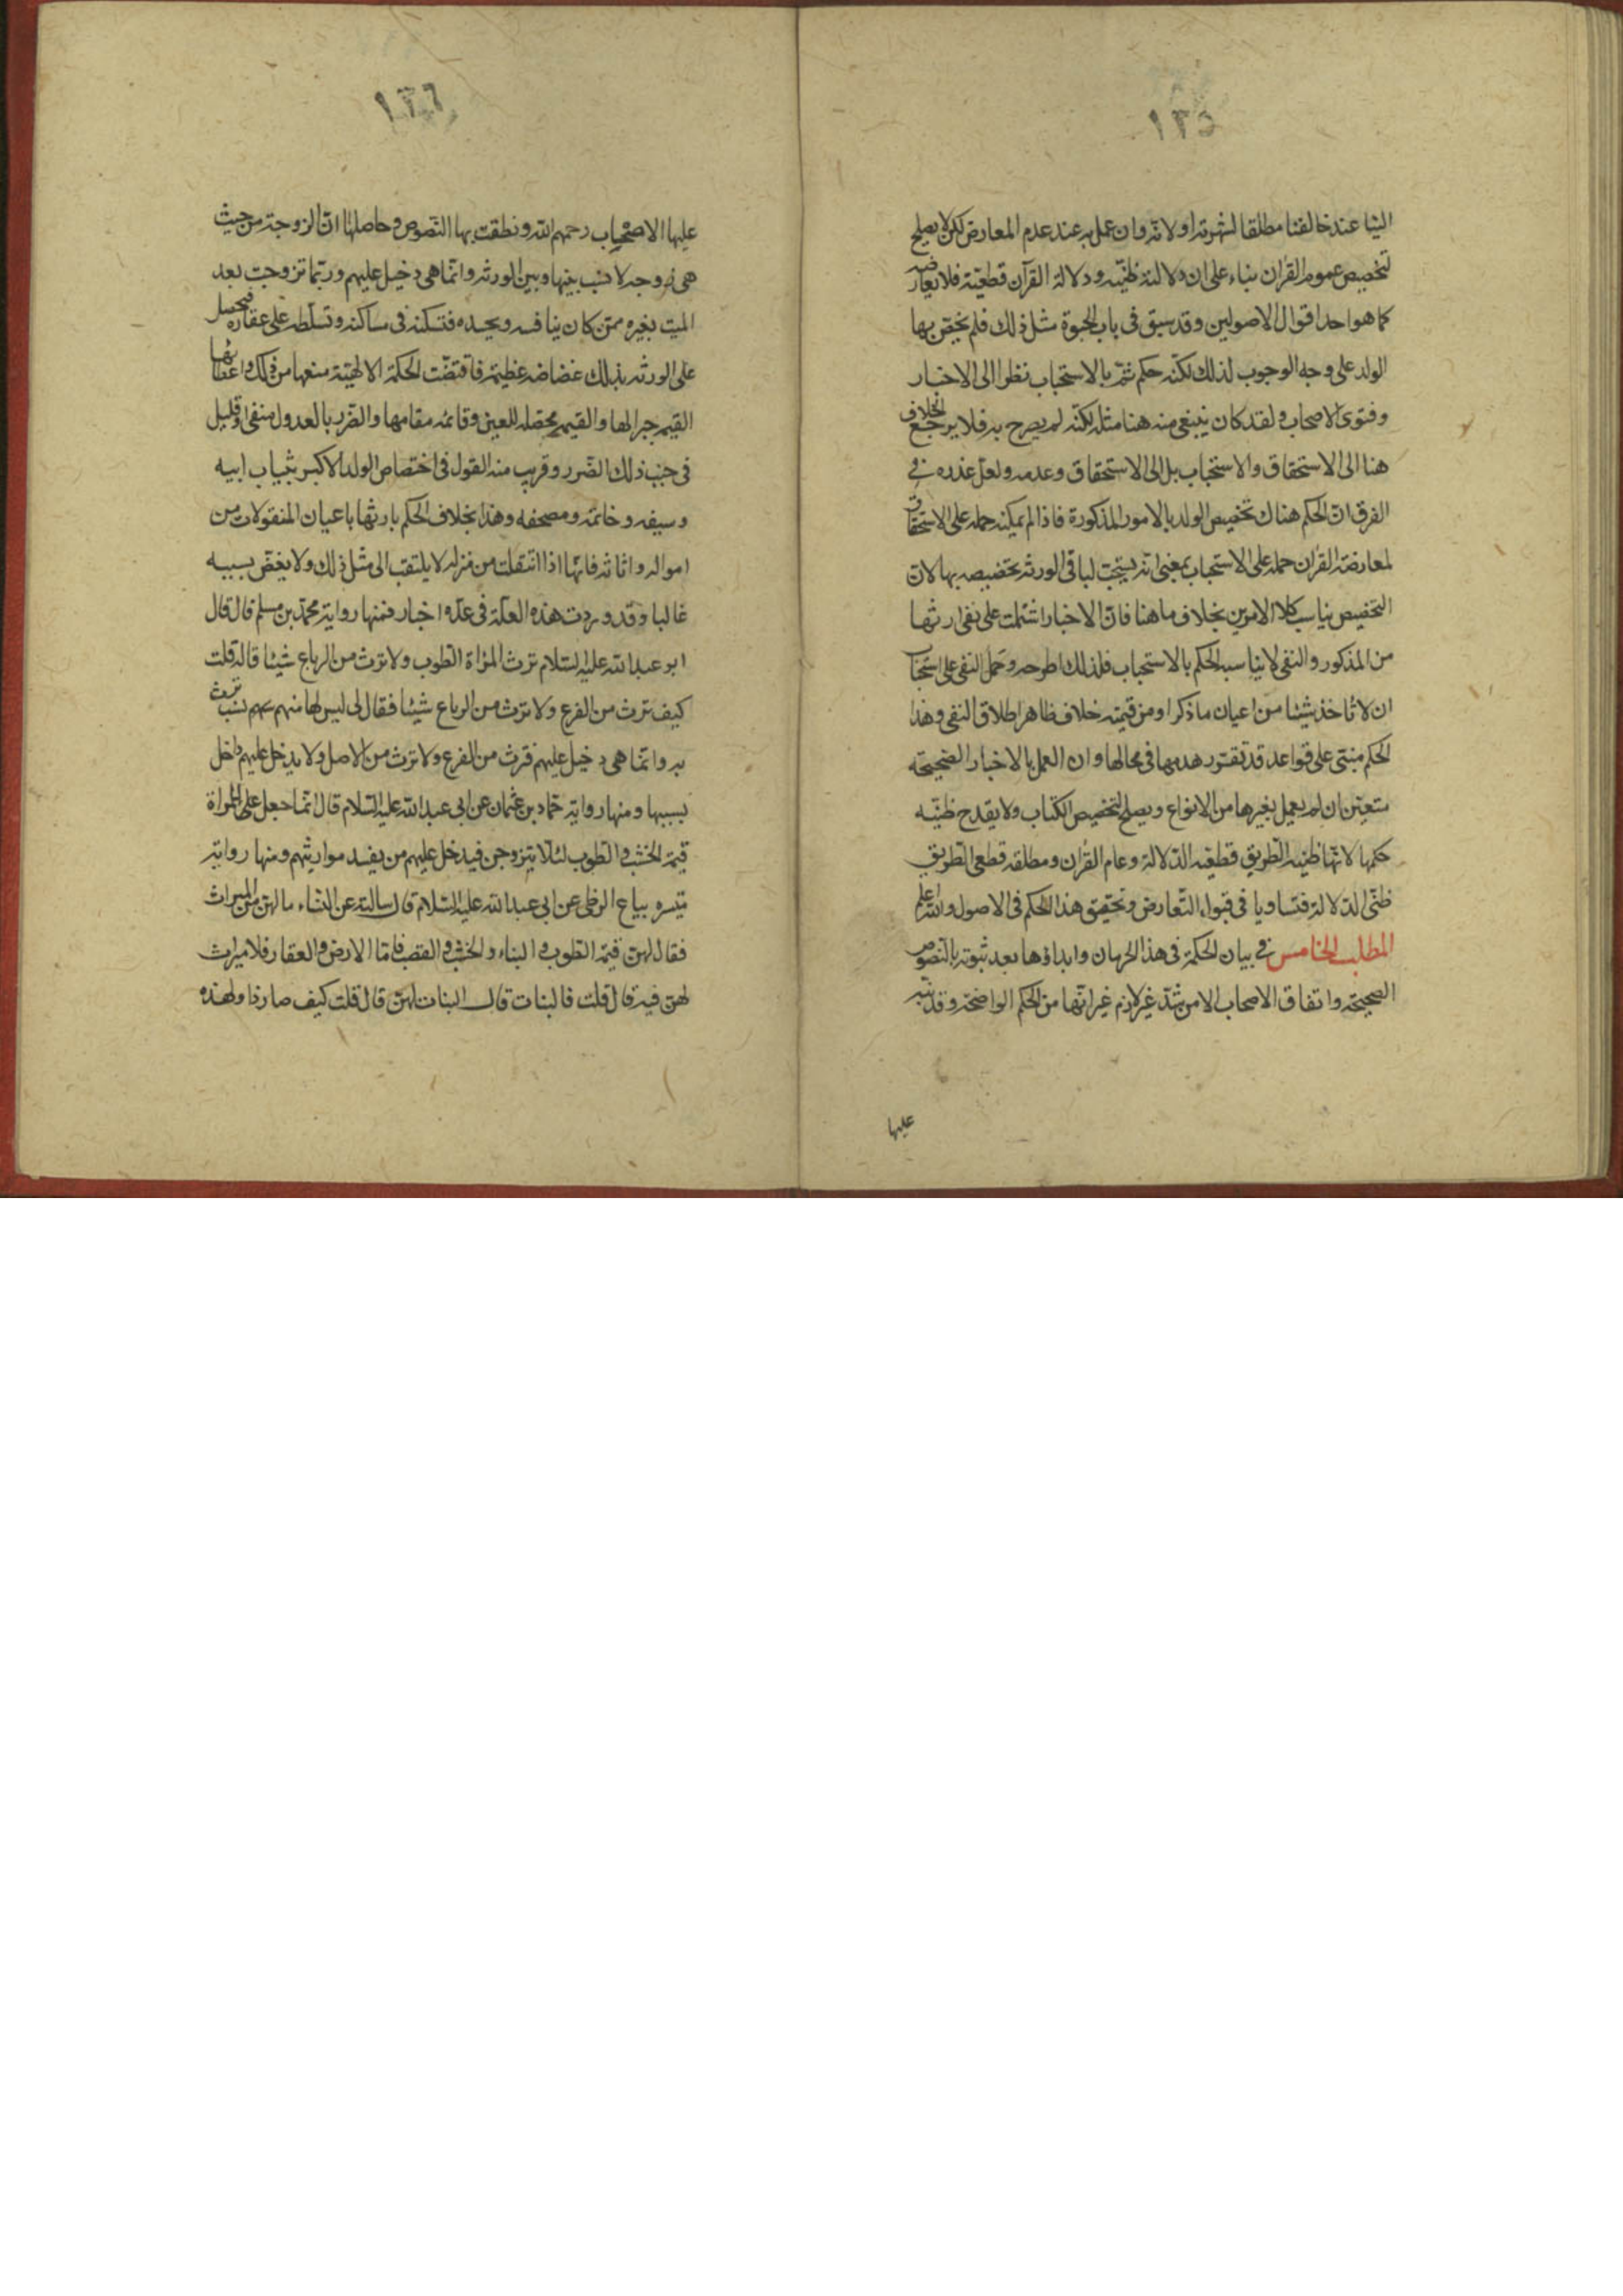 ١٣٥
الينا عند خالفنا مطلقا لشهرته او لانه وان عمل به عند عدم المعارض لكن لا يصلح
لتخصيص عموم القران بناء على ان دلالته ظنيّه ودلالة القرآن قطعيّة فلا يعارضه
كما هو احد اقوال الاصولين وقد سبق فى باب الحبوة مثل ذلك فلم يخصّ بها
الولد على وجه الوجوب لذلك لكنّه حكم ثمّ بالاستحباب نظرا الى الاخبار
وفتوى الاصحاب ولقد كان ينبغى منه هنا مثله لكنّه لم يصرح به فلا يرجع الخلاف
هنا الى الاستحقاق والاستحباب بل الى الاستحقاق وعدمه ولعل عذره فى
الفرق انّ الحكم هناك تخصيص الولد بالامور المذكورة فاذا لم يمكنه حمله على الاستحقاق
لمعارضة القران حمله على الاستحباب بمعنى انه يستحبّ لباقى الورثه تخصيصه بها لانّ
التخصيص يناسب كلا الامرين بخلاف ما هنا فانّ الاخبار اشتملت على نفى ارثها
من المذكور والنفى لا يناسبه الحكم بالاستحباب فلذلك اطرحه وحمل النفى على استحباب
ان لا تاخذ شيئا من اعيان ما ذكر او من قيمته خلاف ظاهر اطلاق النفى وهذا
الحكم مبنىّ على قواعد قد تقرر هدمها فى محالها وان العمل بالاخبار الصحيحة
متعيّن ان لم يعمل بغيرها من الانواع ويصلح لتخصيص الكتاب ولا يقدح ظنيّه
حكمها لانّها ظنيه الطريق قطعيّه الدّلالة وعام القران ومطلقه قطعى الطريق
ظنّى الدّلالة فتساويا فى قبول التّعارض وتحقيق هذا الحكم فى الاصول والله اعلم
المطلب الخامس فى بيان الحكمة فى هذا الحرمان وابداؤها بعد ثبوته بالنّصوص
الصحيحة واتفاق الاصحاب الا من شذّ غير لازم غير انّها من الحكم الواضحة وقد نبّه
عليها
١٣٦
عليها الاصحاب رحمهم الله ونطقت بها النّصوص وحاصلها انّ الزوجة من حيث
هى زوجه لا نسب بينها وبين الورثه وانّما هى دخيل عليهم وربّما تزوجت بعد
الميت بغيره ممّن كان ينافسه ويحسده فتسكنه فى مساكنه وتسلّطه على عقاره فيحصل
على الورثه بذلك غضاضه عظيمة فاقتضت الحكمة الالهيّة منعها من ذلك واعطائها
القيمه جبرا لها والقيمه محصله للعين وقائمه مقامها والضّرر بالعدول منفى او قليل
فى جنب ذلك الضّرر وقريب منه القول فى اختصاص الولد الاكبر بثياب ابيه
وسيفه وخاتمه ومصحفه وهذا بخلاف الحكم بارثها باعيان المنقولات من
امواله واثاثه فانّها اذا انتقلت من منزله لا يلتفت الى مثل ذلك ولا يغضّ بسببه
غالبا وقد وردت هذه العلّة فى عدّه اخبار فمنها رواية محمّد بن مسلم قال قال
ابو عبد الله عليه السّلام ترث المراة الطّوب ولا ترث من الرباع شيئا قال قلت
كيف ترث من الفرع ولا ترث من الرباع شيئا فقال لى ليس لها منهم نسب ترث
به وانّما هى دخيل عليهم فترث من الفرع ولا ترث من الاصل ولا يدخل عليهم داخل
بسببها ومنها رواية حمّاد بن عثمان عن ابى عبد الله عليه السّلام قال انّما جعل للمراة
قيمة الخشب والطّوب لئلّا يتزوجن فيدخل عليهم من يفسد مواريثهم ومنها رواية
ميّسره بياع الزطى عن ابى عبد الله عليه السّلام قال سالته عن النّساء ما لهن من الميراث
فقال لهنّ قيمة الطّوب والبناء والخشب والقصب فامّا الارض والعقار فلا ميراث
لهنّ فيه قال قلت فالبنات قال البنات لهنّ قال قلت كيف صار ذا ولهذه